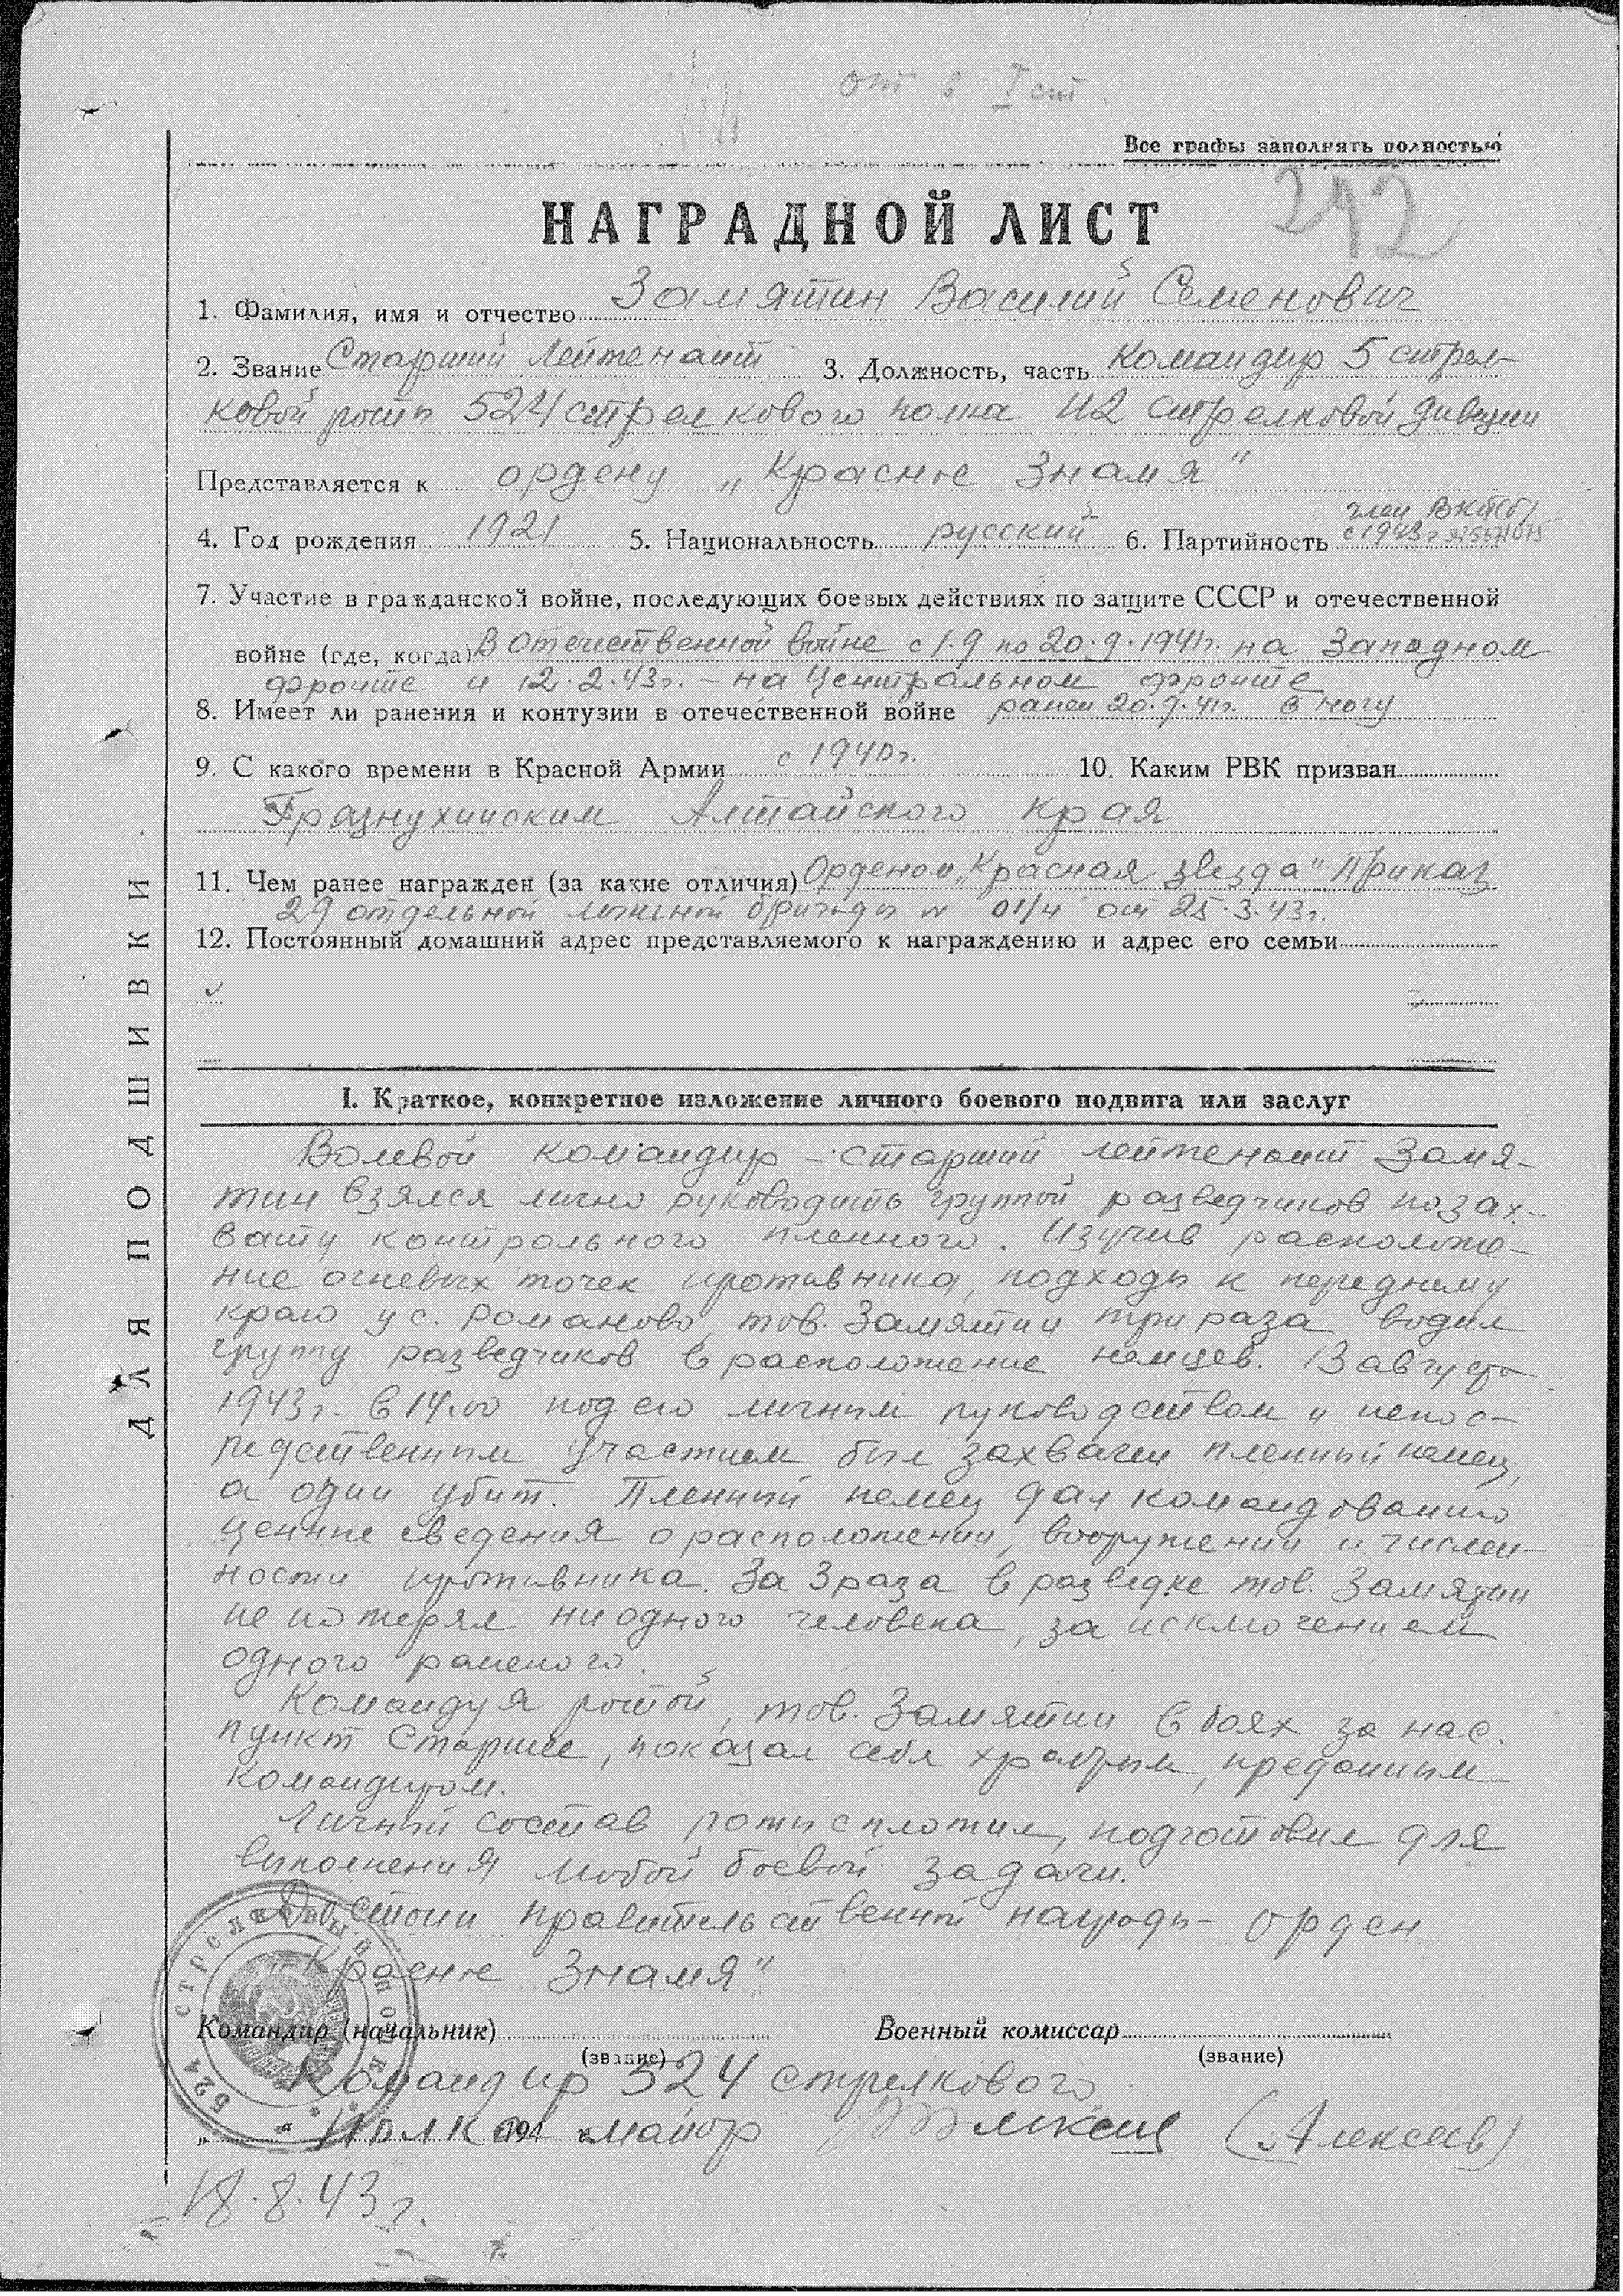 от в I ст
Все графы заполнять полностью
242
НАГРАДНОЙ ЛИСТ
1. Фамилия, имя и отчество Замятин Василий Семенович
2. Звание Старший Лейтенант 3. Должность, часть Командир 5 стрел-
ковой роты 524 стрелкового полка 112 стрелковой дивизии
Представляется к ордену „Красное Знамя"
член ВКП(б)
4. Год рождения 1921 5. Национальность русский 6. Партийность с 1943 г.
7. Участие в гражданской войне, последующих боевых действиях по защите СССР и отечественной
войне (где, когда) В Отечественной войне с 1.9 по 20.9.1941г. на Западном
фронте и 12.2.43г. – на Центральном фронте
8. Имеет ли ранения и контузии в отечественной войне ранен 20.9.41г. в ногу
9. С какого времени в Красной Армии с 1940г. 10. Каким РВК призван
Грязнухинским Алтайского края
11. Чем ранее награжден (за какие отличия) Орденом „Красная звезда" Приказ
29 отдельной лыжной бригады № 01/4 от 25.3.43г.
12. Постоянный домашний адрес представляемого к награждению и адрес его семьи
ДЛЯ ПОДШИВКИ
I. Краткое, конкретное изложение личного боевого подвига или заслуг
Волевой командир – старший лейтенант Замя-
тин взялся лично руководить группой разведчиков по зах-
вату контрольного пленного. Изучив расположе-
ние огневых точек противника, подходы к переднему
краю у с. Романово, тов. Замятин три раза водил
группу разведчиков в расположение немцев. 13 августа
1943г. в 14.00 под его личным руководством и непос-
редственным участием был захвачен пленный немец,
а один убит. Пленный немец дал командованию
ценные сведения о расположении, вооружении и числен-
ности противника. За 3 раза в разведке тов. Замятин
не потерял ни одного человека, за исключением
одного раненого.
Командуя ротой, тов. Замятин в боях за нас.
пункт Старшее, показал себя храбрым, преданным
командиром.
Личный состав роты сплотил, подготовил для
выполнения любой боевой задачи.
Достоин правительственной награды – орден
„Красное Знамя"
Командир (начальник) Военный комиссар
(звание) (звание)
Командир 524 стрелкового
полка майор (Алексеев)
„ “ 194
18.8.43г.
524 стрелковый полк